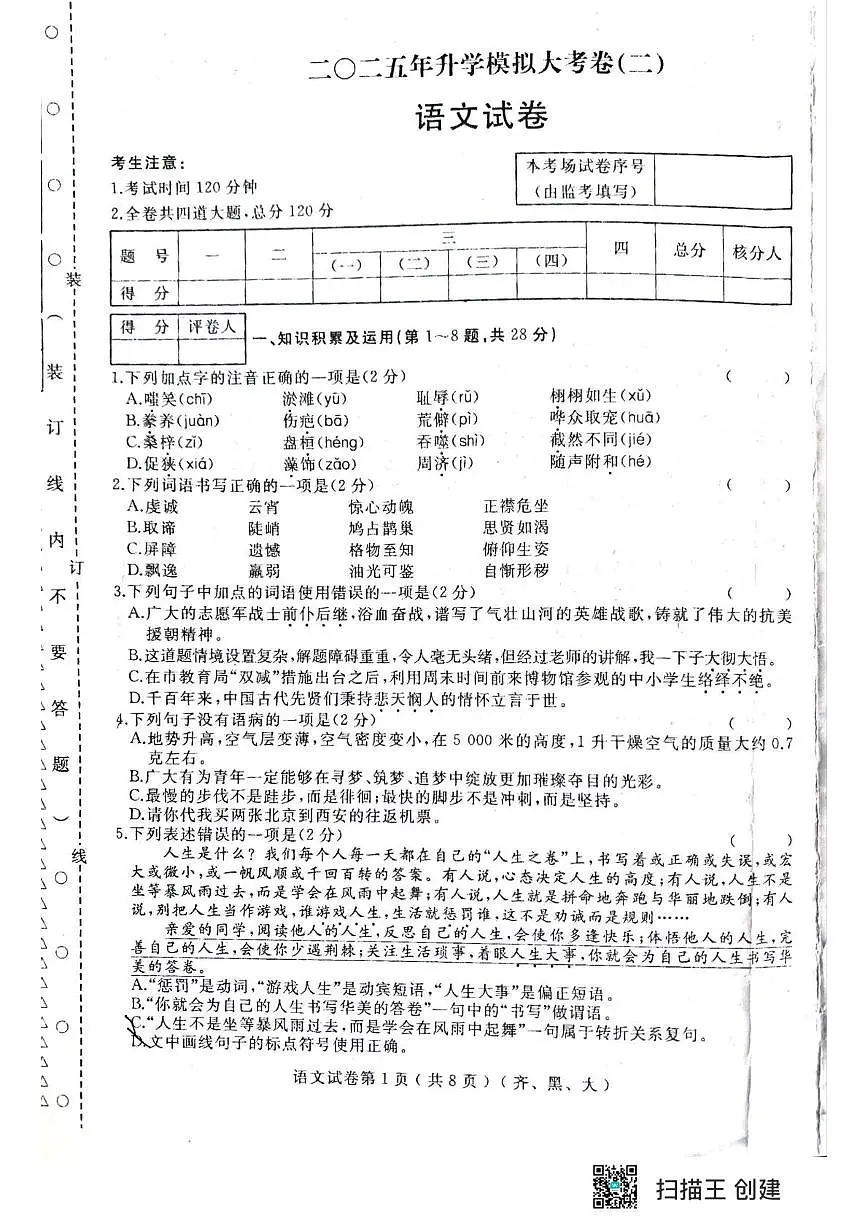 二〇二五年升学模拟大考卷(二)
语文试卷
考生注意：
1.考试时间 120 分钟
2.全卷共四道大题,总分 120 分
本考场试卷序号
(由监考填写)
题 号 一 二 三 四 总分 核分人
(一) (二) (三) (四)
得 分
得 分 评卷人
一、知识积累及运用(第 1～8 题,共 28 分)
1.下列加点字的注音正确的一项是(2 分) ( )
A.嗤笑(chī) 淤滩(yū) 耻辱(rǔ) 栩栩如生(xǔ)
B.豢养(juàn) 伤疤(bā) 荒僻(pì) 哗众取宠(huā)
C.桑梓(zǐ) 盘桓(héng) 吞噬(shì) 截然不同(jié)
D.促狭(xiá) 藻饰(zǎo) 周济(jì) 随声附和(hé)
2.下列词语书写正确的一项是(2 分) ( )
A.虔诚 云宵 惊心动魄 正襟危坐
B.取谛 陡峭 鸠占鹊巢 思贤如渴
C.屏障 遗憾 格物至知 俯仰生姿
D.飘逸 羸弱 油光可鉴 自惭形秽
3.下列句子中加点的词语使用错误的一项是(2 分) ( )
A.广大的志愿军战士前仆后继,浴血奋战,谱写了气壮山河的英雄战歌,铸就了伟大的抗美
援朝精神。
B.这道题情境设置复杂,解题障碍重重,令人毫无头绪,但经过老师的讲解,我一下子大彻大悟。
C.在市教育局“双减”措施出台之后,利用周末时间前来博物馆参观的中小学生络绎不绝。
D.千百年来,中国古代先贤们秉持悲天悯人的情怀立言于世。
4.下列句子没有语病的一项是(2 分) ( )
A.地势升高,空气层变薄,空气密度变小,在 5 000 米的高度,1 升干燥空气的质量大约 0.7
克左右。
B.广大有为青年一定能够在寻梦、筑梦、追梦中绽放更加璀璨夺目的光彩。
C.最慢的步伐不是跬步,而是徘徊;最快的脚步不是冲刺,而是坚持。
D.请你代我买两张北京到西安的往返机票。
5.下列表述错误的一项是(2 分) ( )
人生是什么？我们每个人每一天都在自己的“人生之卷”上,书写着或正确或失误,或宏
大或微小,或一帆风顺或千回百转的答案。有人说,心态决定人生的高度;有人说,人生不是
坐等暴风雨过去,而是学会在风雨中起舞;有人说,人生就是拼命地奔跑与华丽地跌倒;有人
说,别把人生当作游戏,谁游戏人生,生活就惩罚谁,这不是劝诫而是规则……
亲爱的同学,阅读他人的人生,反思自己的人生,会使你多逢快乐;体悟他人的人生,完
善自己的人生,会使你少遇荆棘;关注生活琐事,着眼人生大事,你就会为自己的人生书写华
美的答卷。
A.“惩罚”是动词,“游戏人生”是动宾短语,“人生大事”是偏正短语。
B.“你就会为自己的人生书写华美的答卷”一句中的“书写”做谓语。
C.“人生不是坐等暴风雨过去,而是学会在风雨中起舞”一句属于转折关系复句。
D.文中画线句子的标点符号使用正确。
语文试卷第 1 页 ( 共 8 页 ) ( 齐、黑、大 )
装
订
线
(
装
订
线
内
不
要
答
题
)
扫描王 创建